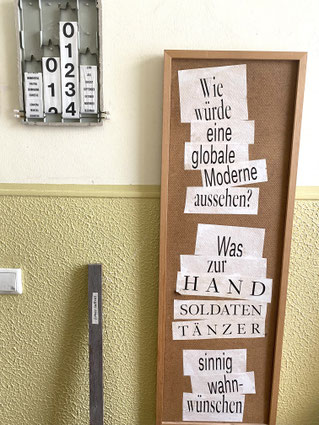 0
0 1
1 2
3
4
Wie
würde
eine
globale
Moderne
aussehen?
Was
zur
HAND
SOLDATEN
TÄNZER
sinnig
wahn-
wünschen